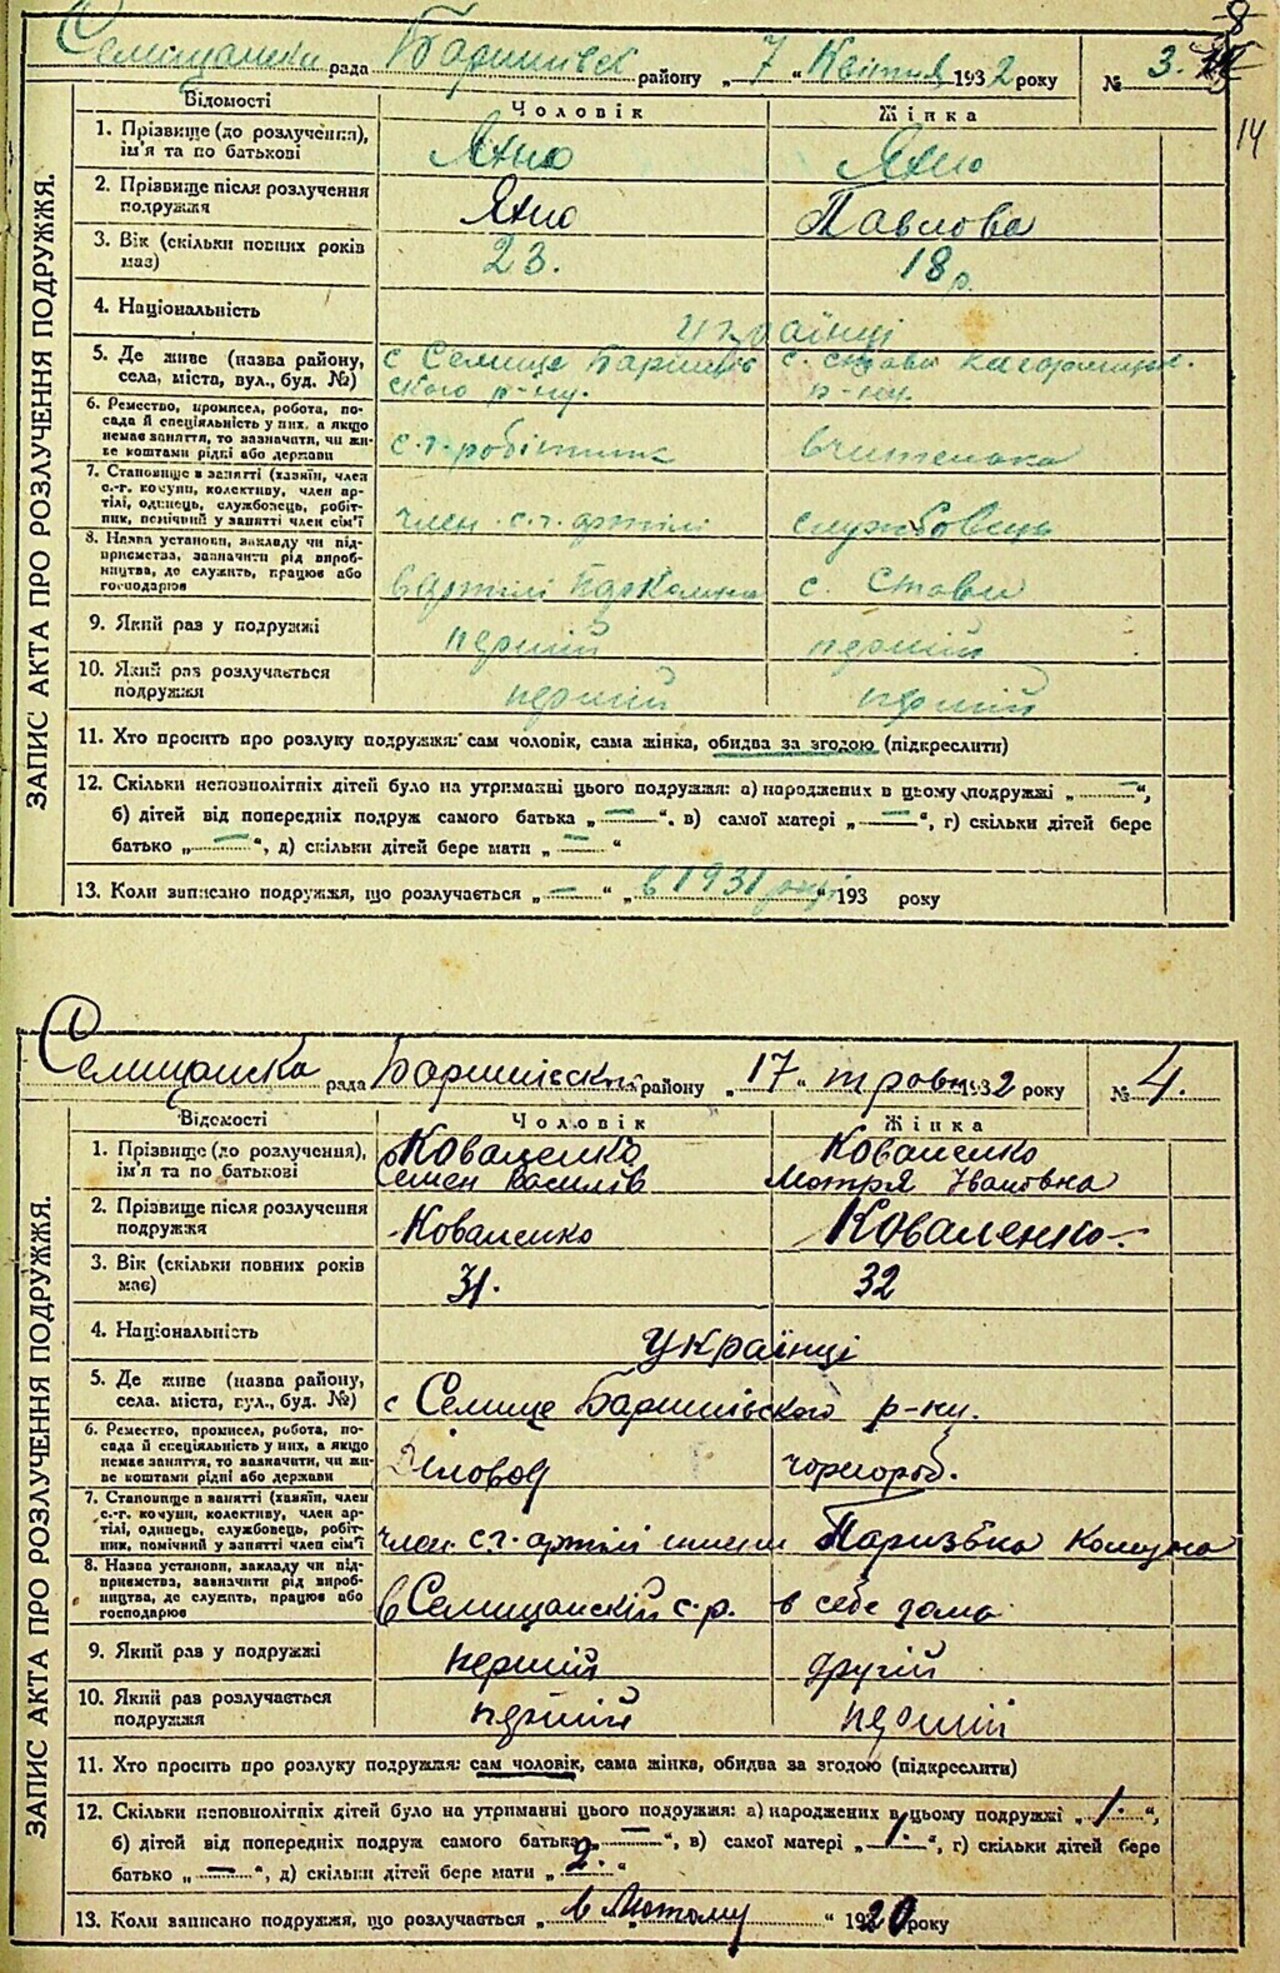 8
14
Семищанска рада Баришівск району „7“ Квітня 1932 року № 3.
ЗАПИС АКТА ПРО РОЗЛУЧЕННЯ ПОДРУЖЖЯ.
Відомості Чоловік Жінка
1. Прізвище (до розлучення), ім'я та по батькові Яхно Яхно
2. Прізвище після розлучення подружжя Яхно Павлова
3. Вік (скільки повних років має) 23. 18 р.
4. Національність українці
5. Де живе (назва району, села, міста, вул., буд. №) с Селище Баришівського р-ну. с. Стави р-ну.
6. Ремество, промисел, робота, посада й спеціяльність у них, а якщо немає заняття, то зазначити, чи живе коштами рідні або держави с.г. робітник вчителька
7. Становище в занятті (хазяїн, член с.-г. комуни, колективу, член артілі, одинець, службовець, робітник, помічний у занятті член сім'ї член с.г. артілі службовець
8. Назва установи, закладу чи підприємства, зазначити рід виробництва, де служить, працює або господарює в артілі с. Стави
9. Який раз у подружжі перший перший
10. Який раз розлучається подружжя перший перший
11. Хто просить про розлуку подружжя: сам чоловік, сама жінка, обидва за згодою (підкреслити)
12. Скільки неповнолітніх дітей було на утриманні цього подружжя: а) народжених в цьому подружжі „—“,
б) дітей від попередніх подруж самого батька „—“, в) самої матері „—“, г) скільки дітей бере
батько „—“, д) скільки дітей бере мати „—“
13. Коли записано подружжя, що розлучається „—“ „в 1931 році“ 193 року
Семищанска рада Баришівский району „17“ травня 1932 року № 4.
ЗАПИС АКТА ПРО РОЗЛУЧЕННЯ ПОДРУЖЖЯ.
Відомості Чоловік Жінка
1. Прізвище (до розлучення), ім'я та по батькові Коваленко Семен Василів Коваленко Мотря Івановна
2. Прізвище після розлучення подружжя Коваленко Коваленко
3. Вік (скільки повних років має) 31. 32
4. Національність Українці
5. Де живе (назва району, села, міста, вул., буд. №) с Селище Баришівського р-ну.
6. Ремество, промисел, робота, посада й спеціяльність у них, а якщо немає заняття, то зазначити, чи живе коштами рідні або держави Діловод чорнороб.
7. Становище в занятті (хазяїн, член с.-г. комуни, колективу, член артілі, одинець, службовець, робітник, помічний у занятті член сім'ї член с.г. артілі імени Паризька Комуна
8. Назва установи, закладу чи підприємства, зазначити рід виробництва, де служить, працює або господарює в Семищанскій с.р. в себе дома
9. Який раз у подружжі перший другій
10. Який раз розлучається подружжя перший перший
11. Хто просить про розлуку подружжя: сам чоловік, сама жінка, обидва за згодою (підкреслити)
12. Скільки неповнолітніх дітей було на утриманні цього подружжя: а) народжених в цьому подружжі „1.“,
б) дітей від попередніх подруж самого батька „—“, в) самої матері „1.“, г) скільки дітей бере
батько „—“, д) скільки дітей бере мати „2.“
13. Коли записано подружжя, що розлучається „в Лютому“ 1920 року